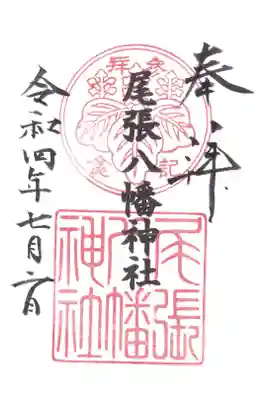 奉拝
尾張八幡神社
令和四年七月二日
参拝
記念
尾張
八幡
神社